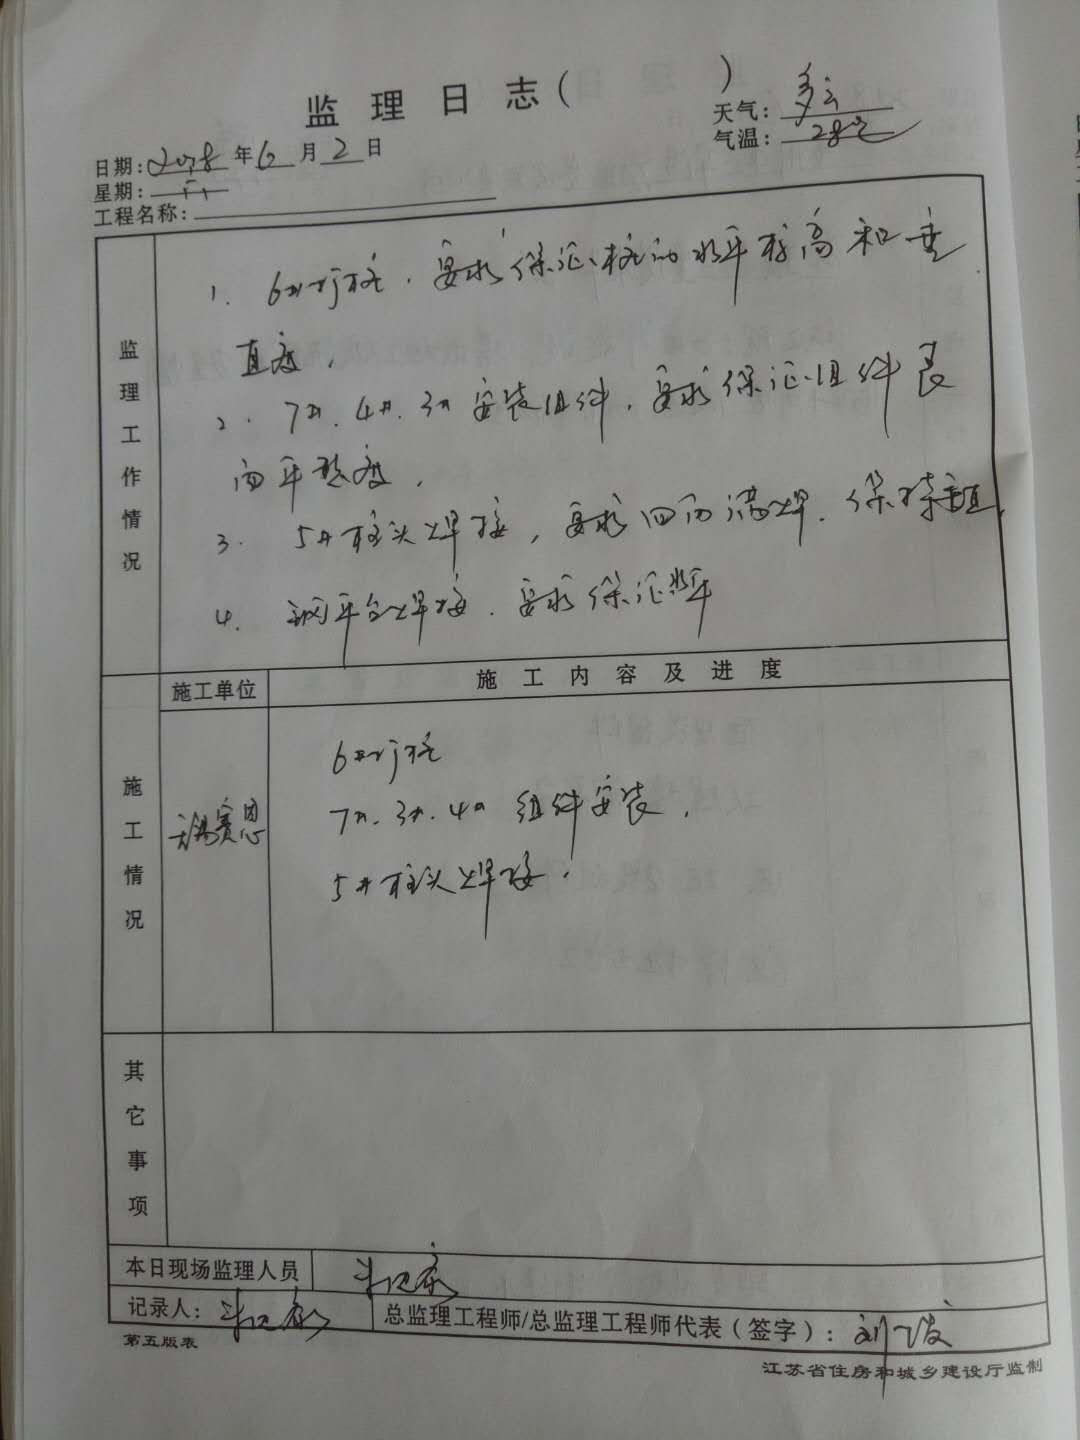 监理日志( )
天气：多云
气温：28℃
日期：2018年6月2日
星期：六
工程名称：
监理工作情况
1. 6#打桩，要求保证桩的水平标高和垂
直度，
2. 7#.4#.3#安装组件，要求保证组件表
面平整度，
3. 5#柱头焊接，要求四面满焊，保持垂直，
4. 钢平台焊接，要求保证水平
施工情况
施工单位
施工内容及进度
无锡赛恩
6#打桩
7#.3#.4#组件安装，
5#柱头焊接，
其它事项
本日现场监理人员
记录人：
总监理工程师/总监理工程师代表（签字）：刘
第五版表
江苏省住房和城乡建设厅监制